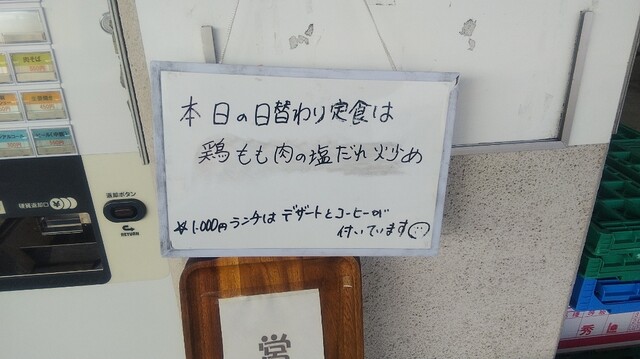 本日の日替わり定食は
鶏もも肉の塩だれ炒め
☆1.000円ランチは デザートとコーヒーが
付いています☺
返却ボタン
RETURN
硬貨返却口
営
秀